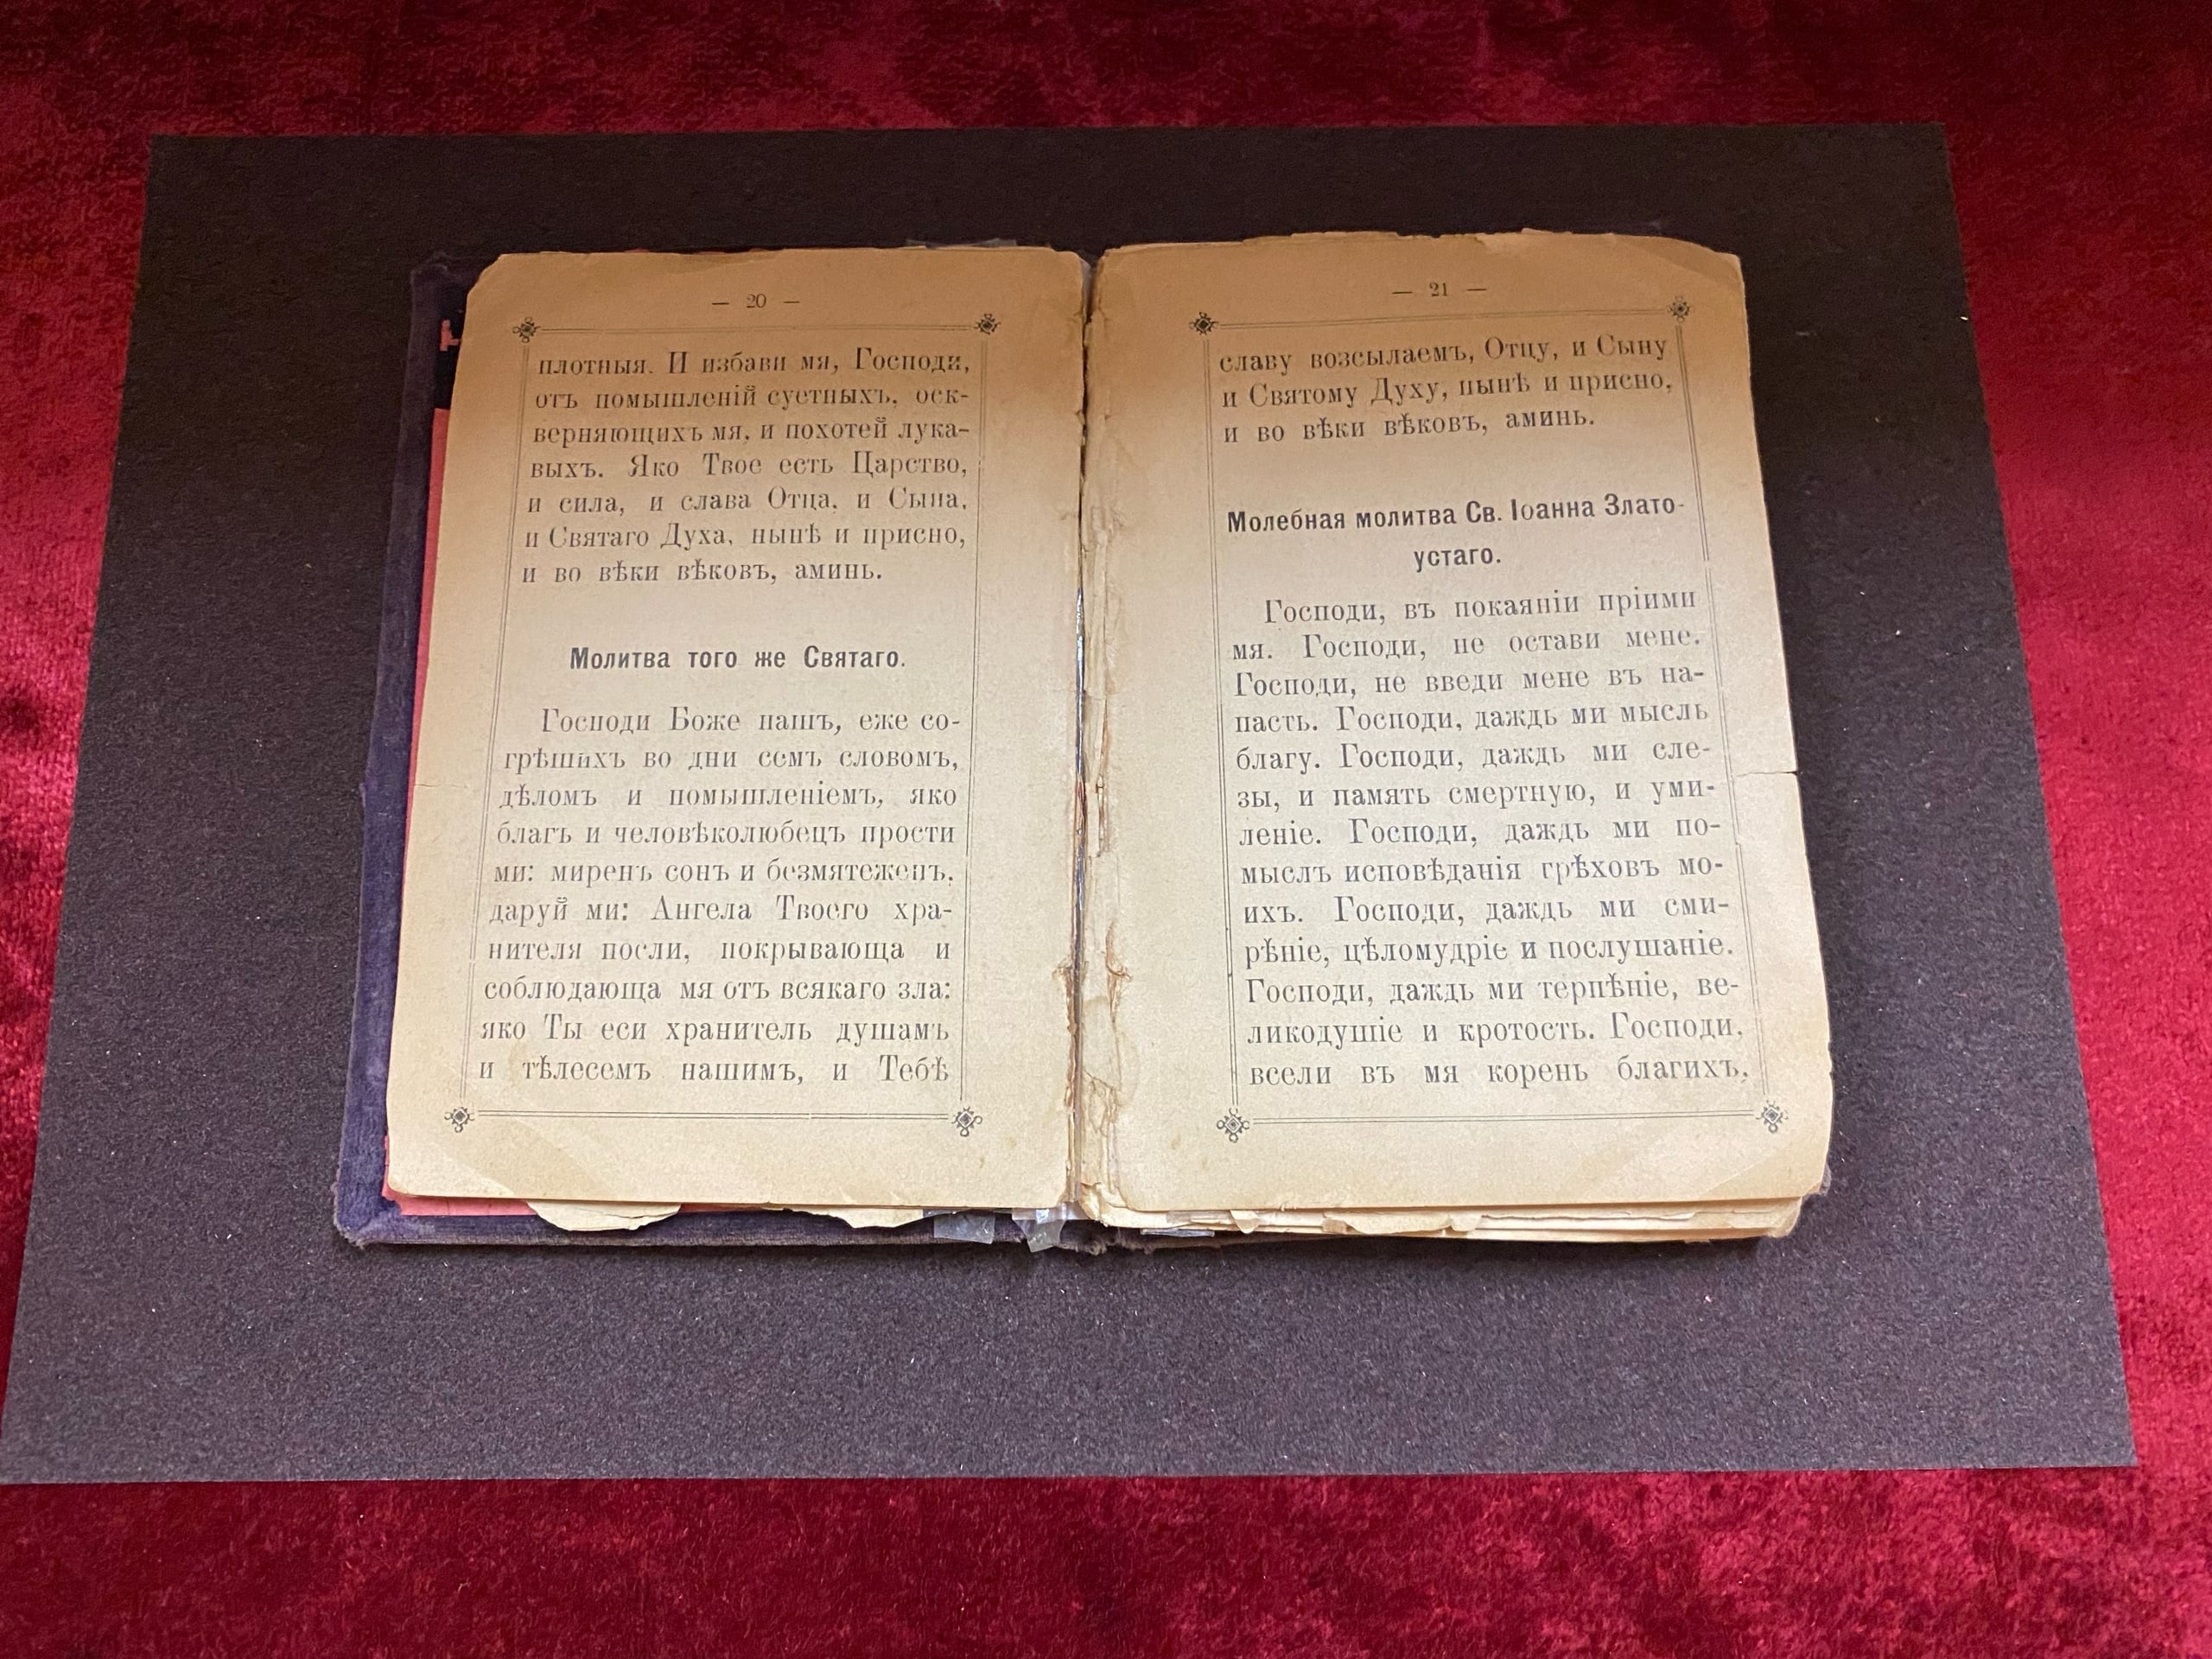 — 20 —
плотныя. И избави мя, Господи,
отъ помышленій суетныхъ, оск-
верняющихъ мя, и похотей лука-
выхъ. Яко Твое есть Царство,
и сила, и слава Отца, и Сына,
и Святаго Духа, нынѣ и присно,
и во вѣки вѣковъ, аминь.
Молитва того же Святаго.
Господи Боже нашъ, еже со-
грѣшихъ во дни семъ словомъ,
дѣломъ и помышленіемъ, яко
благъ и человѣколюбецъ прости
ми: миренъ сонъ и безмятеженъ,
даруй ми: Ангела Твоего хра-
нителя посли, покрывающа и
соблюдающа мя отъ всякаго зла:
яко Ты еси хранитель душамъ
и тѣлесемъ нашимъ, и Тебѣ
— 21 —
славу возсылаемъ, Отцу, и Сыну
и Святому Духу, нынѣ и присно,
и во вѣки вѣковъ, аминь.
Молебная молитва Св. Іоанна Злато-
устаго.
Господи, въ покаяніи пріими
мя. Господи, не остави мене.
Господи, не введи мене въ на-
пасть. Господи, даждь ми мысль
благу. Господи, даждь ми сле-
зы, и память смертную, и уми-
леніе. Господи, даждь ми по-
мыслъ исповѣданія грѣховъ мо-
ихъ. Господи, даждь ми сми-
рѣніе, цѣломудріе и послушаніе.
Господи, даждь ми терпѣніе, ве-
ликодушіе и кротость. Господи,
всели въ мя корень благихъ,